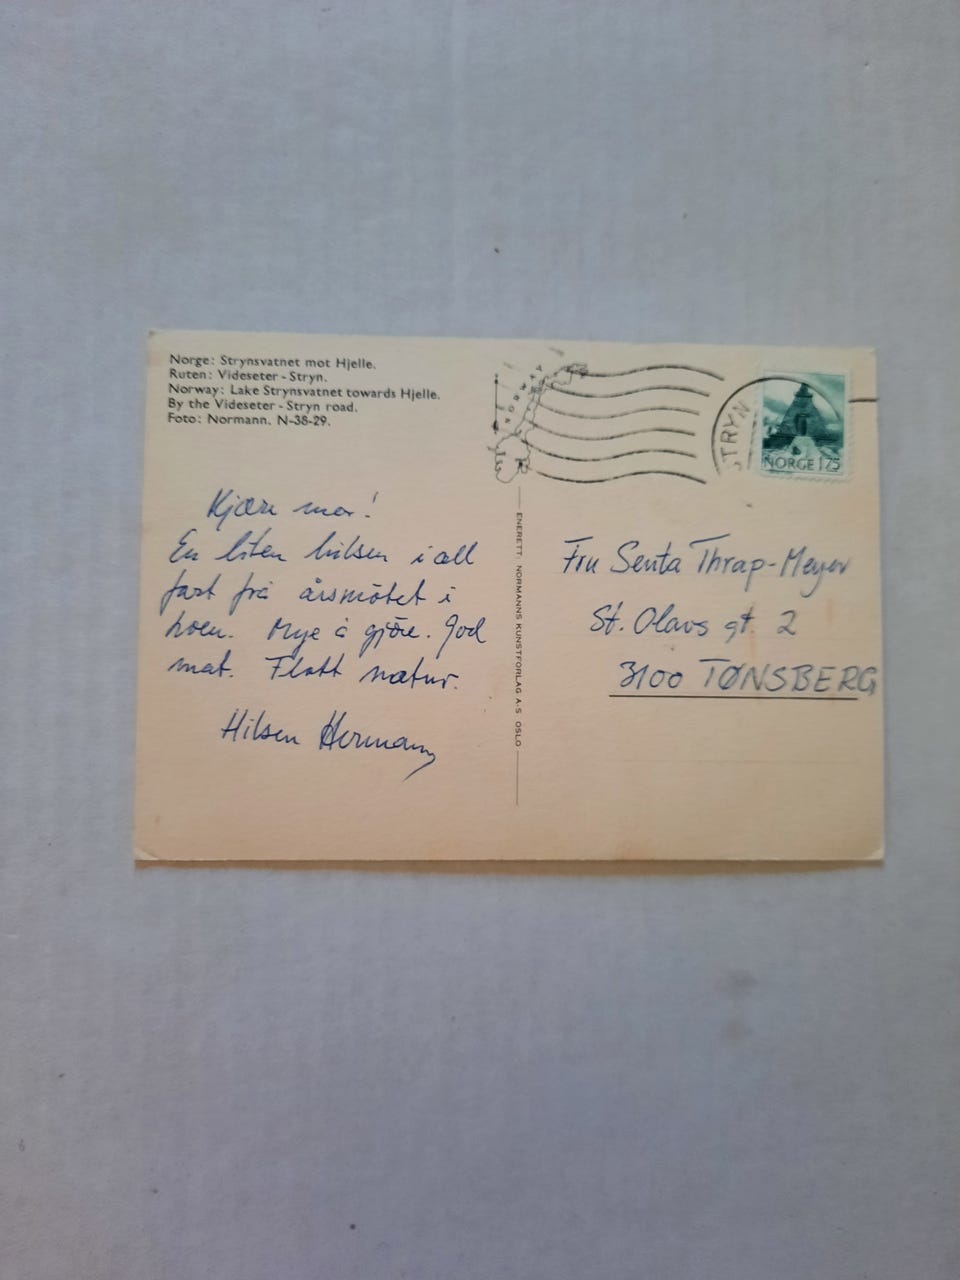 Norge: Strynsvatnet mot Hjelle.
Ruten: Videseter - Stryn.
Norway: Lake Strynsvatnet towards Hjelle.
By the Videseter - Stryn road.
Foto: Normann. N-38-29.
Kjære mor!
En liten hilsen i all
fart fra årsmötet i
Mye å gjöre. God
mat. Flott natur.
Hilsen Hermann
ENERETT: NORMANNS KUNSTFORLAG A.S OSLO
NORWAY
STRYN
NORGE 175
Fru Senta Thrap-Meyer
St. Olavs gt. 2
3100 TØNSBERG